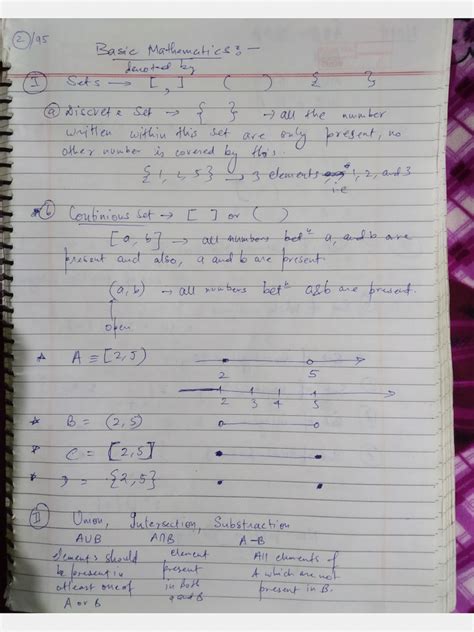 2/95
Basic Mathematics :-
denoted by
I Sets → [ , ] ( ) { }
a Discrete Set → { } → all the number
written within this set are only present, no
other number is covered by this.
{ 1, 2, 5 } → 3 elements 1, 2, and 3
i.e
b Continious Set → [ ] or ( )
[a, b] → all numbers betn a, and b are
present and also, a and b are present.
(a, b) → all numbers betn a&b are present.
open
A ≡ [2, 5)
2 5
2 3 4 5
B = (2, 5)
C = [2, 5]
D = {2, 5}
II Union, Intersection, Substraction
A∪B A∩B A-B
elements should element All elements of
be present in present A which are not
atleast one of in both present in B.
A or B and B